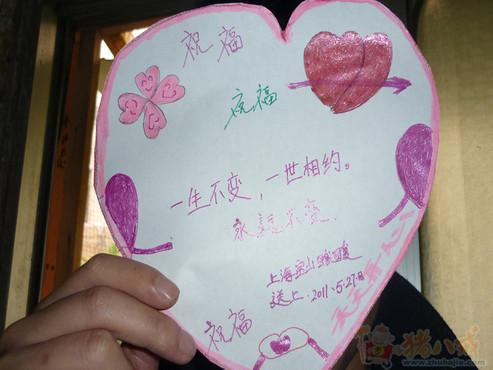 祝福
祝福
一生不变，一世相约。
永远不变.
上海宝山
送上.2011.5.27日
祝福
天天开心
猪八戒
www.zhubajie.com